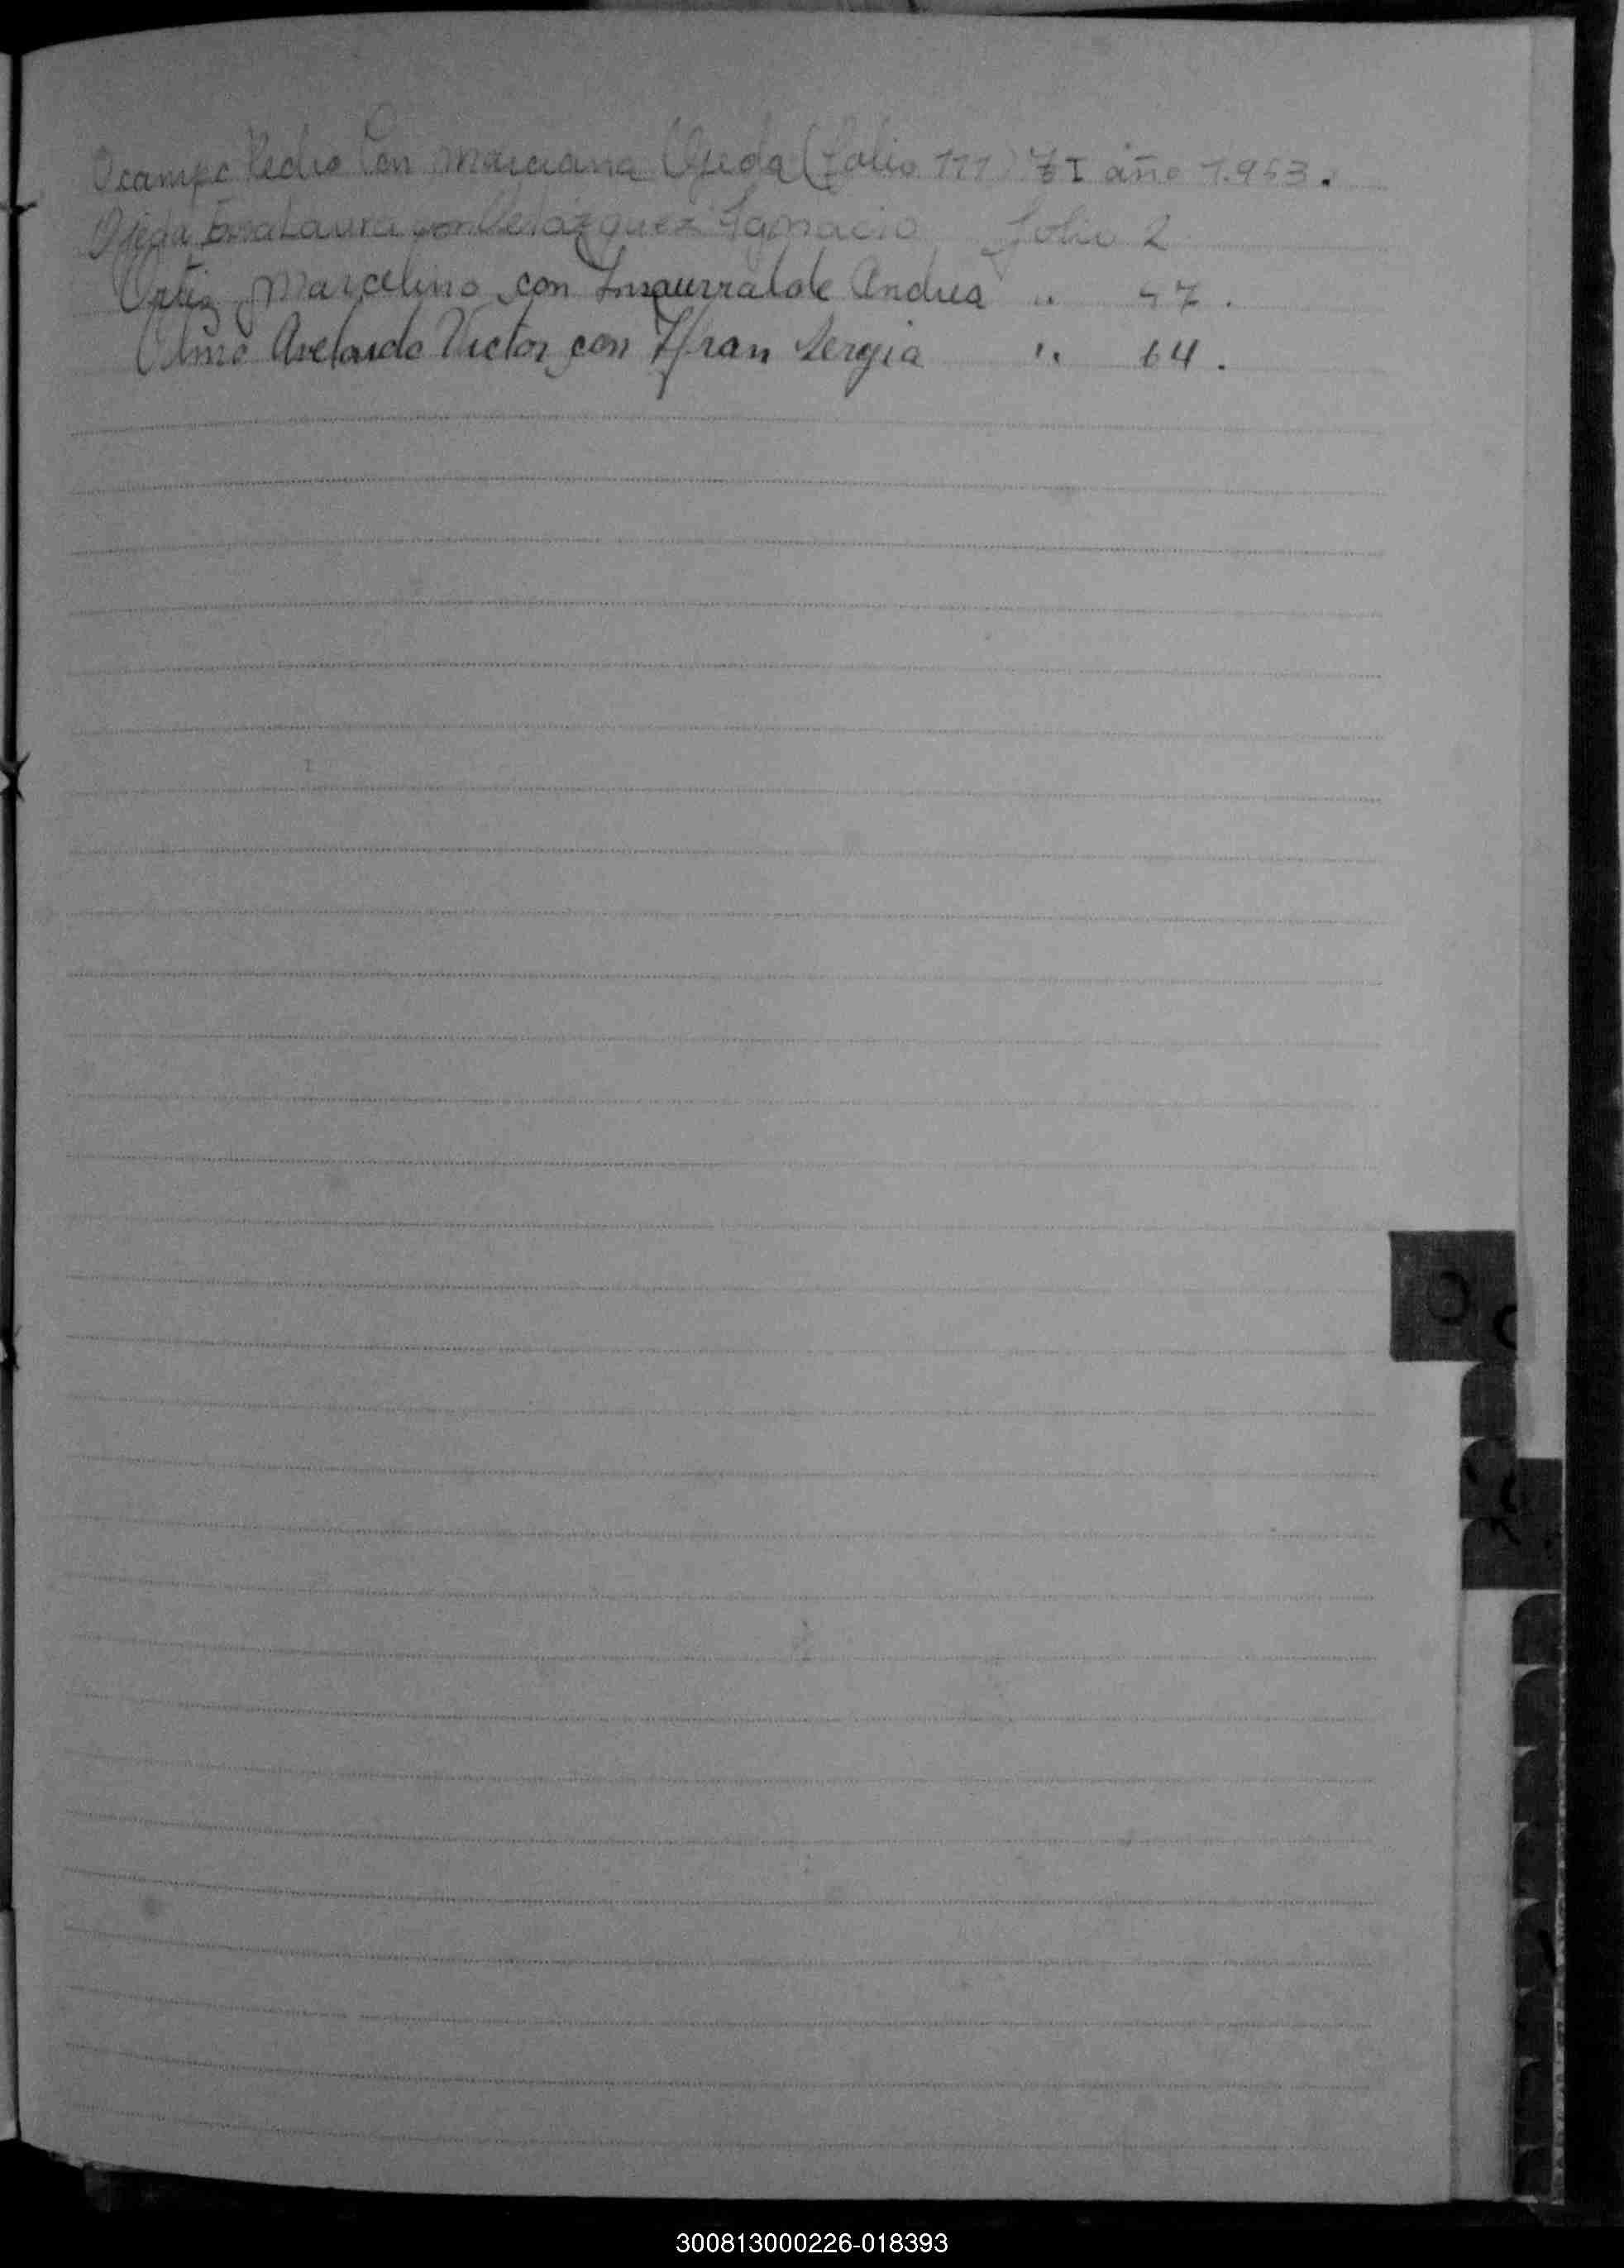 Ocampo Pedro Con Marciana Ojeda (folio 111) TI año 1.953.
Ojeda Laura con Velázquez Ignacio folio 2
Ortiz, Marcelino con Insaurralde Andrea " 47.
Olmo Avelardo Victor con Ifran Sergia " 64.
O
300813000226-018393